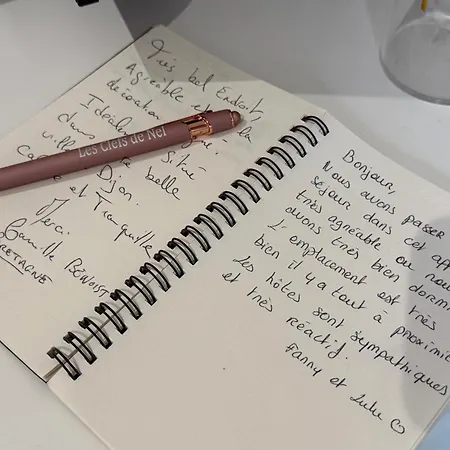 Très bel Endroit,
Agréable et la
décoration
Idéalement Situé
dans
ville Dijon.
ca et Tranquille
Merci
Camille BENOIS
RETAGNE
Les Clefs de Nel
Bonjour,
Nous avons passer
séjour dans cet app
très agréable ou nous
avons très bien dormi
L'emplacement est très
bien il y a tout à proximité
Les hôtes sont sympathiques
et très réactif.
Fanny et Lulu